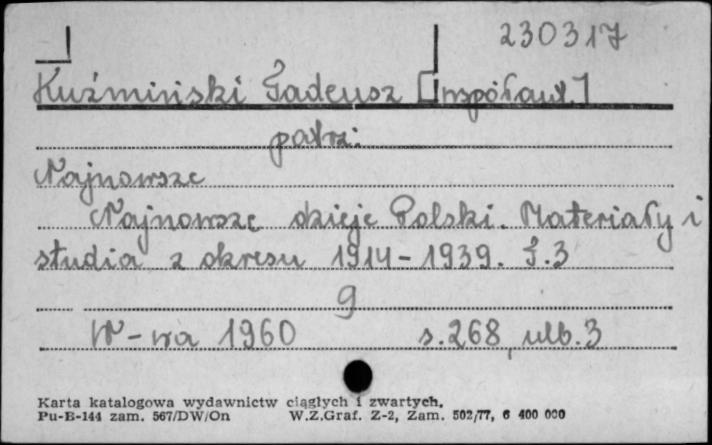 230317
Kuźmiński Tadeusz [współaut.]
patrz:
Najnowsze
Najnowsze dzieje Polski. Materiały i
studia z okresu 1914-1939. T.3
9
W-wa 1960 s.268, ulb.3
Karta katalogowa wydawnictw ciągłych i zwartych.
Pu-B-144 zam. 567/DW/On W.Z.Graf. Z-2, Zam. 502/77, 6 400 000